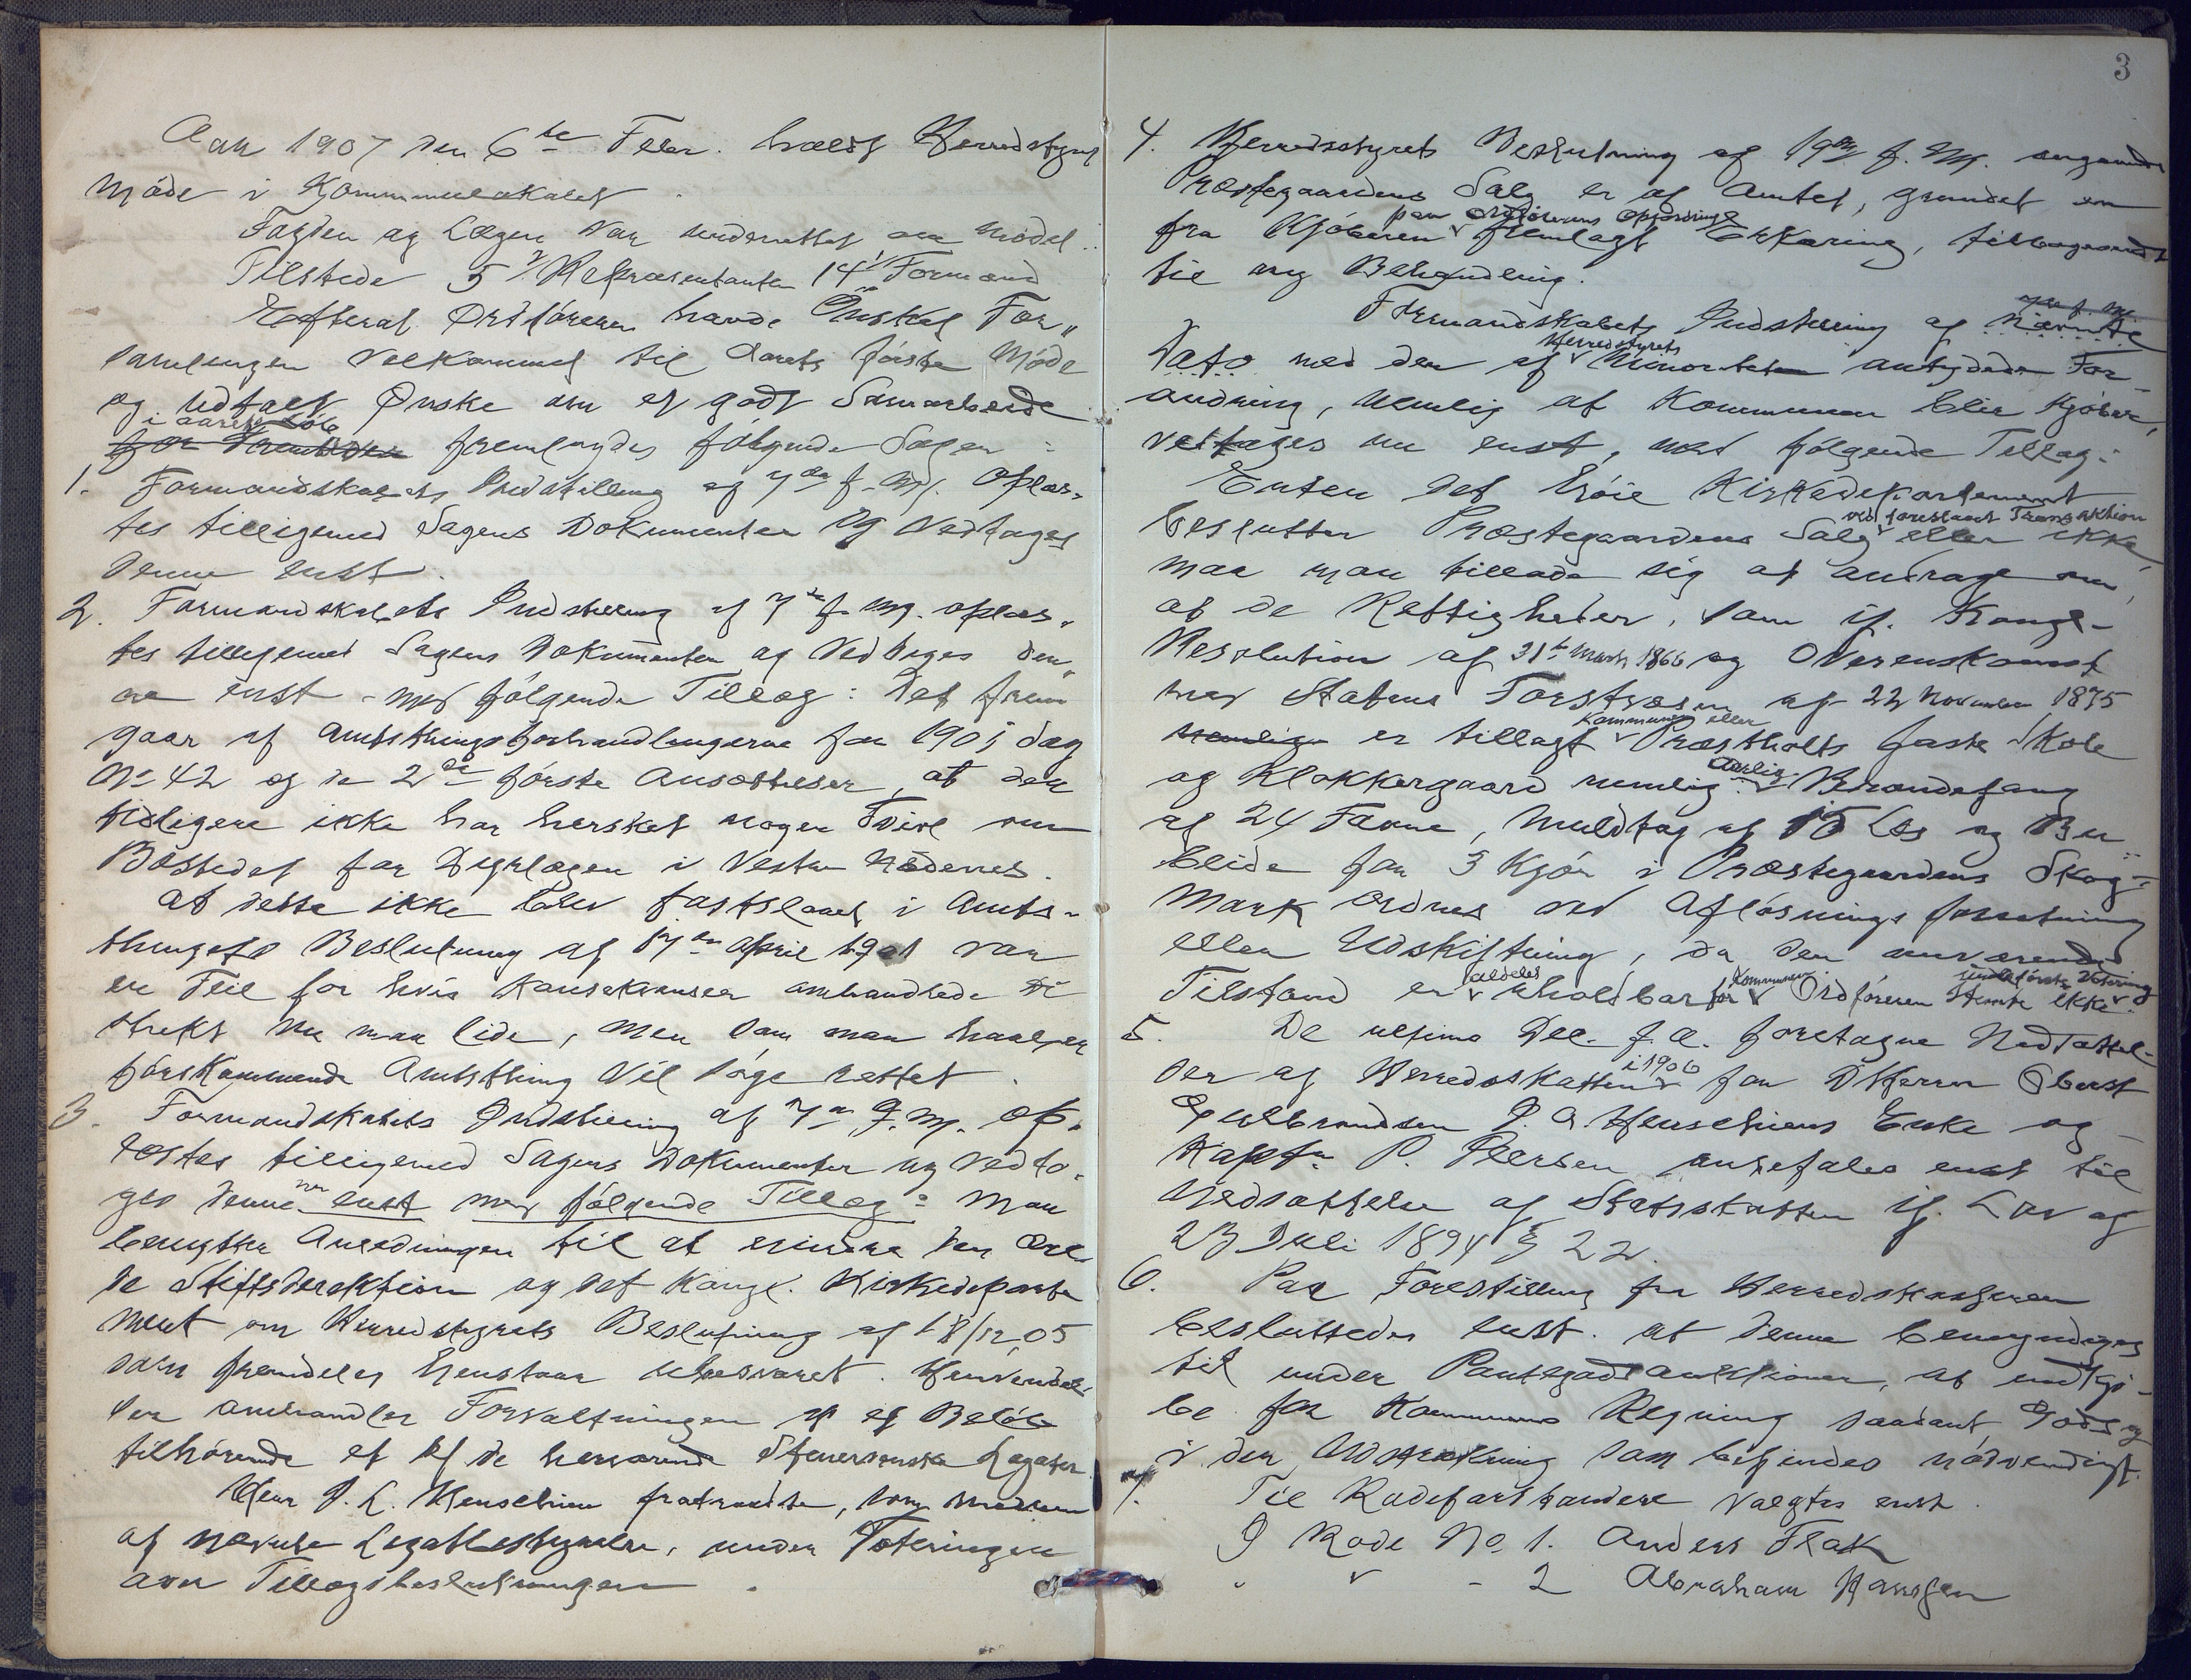 Aar 1907 den 6te Febr. holdt Herredstyret
Møde i Kommunelokalet.
Fogden og Lægen var underrettet om Mødet.
Tilstede 5 Repræsentanter 14 Formænd
Efterat Ordføreren havde Ønsket For„
samlingen velkommet til Aarets første Møde
og udtalt Ønske om et godt Samarbeide
i aarets Løb
for fremlagdes følgende Sager:
1. Formandskabets Indstilling af 7de f. M. oplæs-
tes tilligemed Sagens Dokumenter og Vedtages
denne enst.
2. Formandskabets Indstilling af 7de f. M. oplæs„
tes tilligemed Sagens Dokumenter og Vedtages den„
ne enst - med følgende Tillæg: Det frem
gaar af Amtsthingsforhandlingerne for 1901 Sag
No 42 og de 2de første Ansættelser, at der
tidligere ikke har hersket nogen Tvivl om
Bostedet for Digrlægen i Vestre Nedenes.
At dette ikke blev fastslaaet i Amts-
thingets Beslutning af 17de April 1901 var
en Feil for hvis Konsekvenser omhandlede Di
strikt nu maa lide, men som man haaber
førskommende Amtsthing vil søge rettet.
3. Formandskabets Indstilling af 7de f. M. op-
læstes tilligemed Sagens Dokumenter og vedto-
ges denne enst med følgende Tillæg: Man
benytter Anledningen til at erindre den ær-
de Stiftsdirektion og det Kongl. Kirkedeparte
ment om Herredstyrets Beslutning af 18/12 05
som fremdeles henstaar ubesvaret. Henvendel-
sen omhandler Forvaltningen af et Beløb
tilhørende et af de herværende Legater
Herr P. C. Henschien fratraadte, som Medlem
af nævnte Legatbestyrelse, under Voteringen
om Tillægsbeslutningen.
3
4. Herredsstyrets Beslutning af 19de f. M. angaaende
Præstegaardens Salg er af Amtet, grundet en
paa Ordførerens Opfordring
fra Kjøberen fremlagt Erklæring, tilbagesendt
til ny Behandling.
Formandskabets Indstilling af nævnte
Herredstyrets
Dato med den af Minoriteten antydede For-
andring, nemlig at Kommunen blir Kjøber,
vedtages nu enst, med følgende Tillæg:
Enten det høie Kirkedepartement
ved forestaaet Transaktion
beslutter Præstegaardens Salg eller ikke,
maa man tillade sig at andrage om,
at de Rettigheder, som if. Kongl-
Resolution af 31te Marts 1866 og Overenskomst
med Statens Forstvæsen af 22 November 1875
Kommunen eller
nemlig er tillagt Præstholts faste Skole
aarlig
og Klokkergaard nemlig Brændefang
af 24 Favne, Muldtag af 15 Læs og Bu
beide for 3 Kjør i Præstegaardens Skog-
mark ordnes ved Afløsningsforretning
eller Udskiftning, da den nuværende
aldeles Kommunen
Tilstand er uholdbar for Ordføreren stemte ikke
5. De ultimo Dec. f. A. foretagne Nedsættel-
i 1906
ser af Herredsskatten for D'Herrer Oberst
Gulbrandsen P. A. Henschiens Enke og
Kaptn P. Pedersen anbefales enst til
Nedsættelse af Statsskatten if. Lov af
27 Juli 1894 § 22.
6. Paa Forestilling fra Herredskasseren
besluttedes enst. at denne bemyndiges
til under Pantegodsauktioner, at indkjø-
be for Kommunens Regning saadant Gods og
i den Udstrækning som befindes nødvendigt.
7. Til Rodeforstandere valgtes enst.
I Rode No. 1. Anders Flak
" " - 2 Abraham Hansen